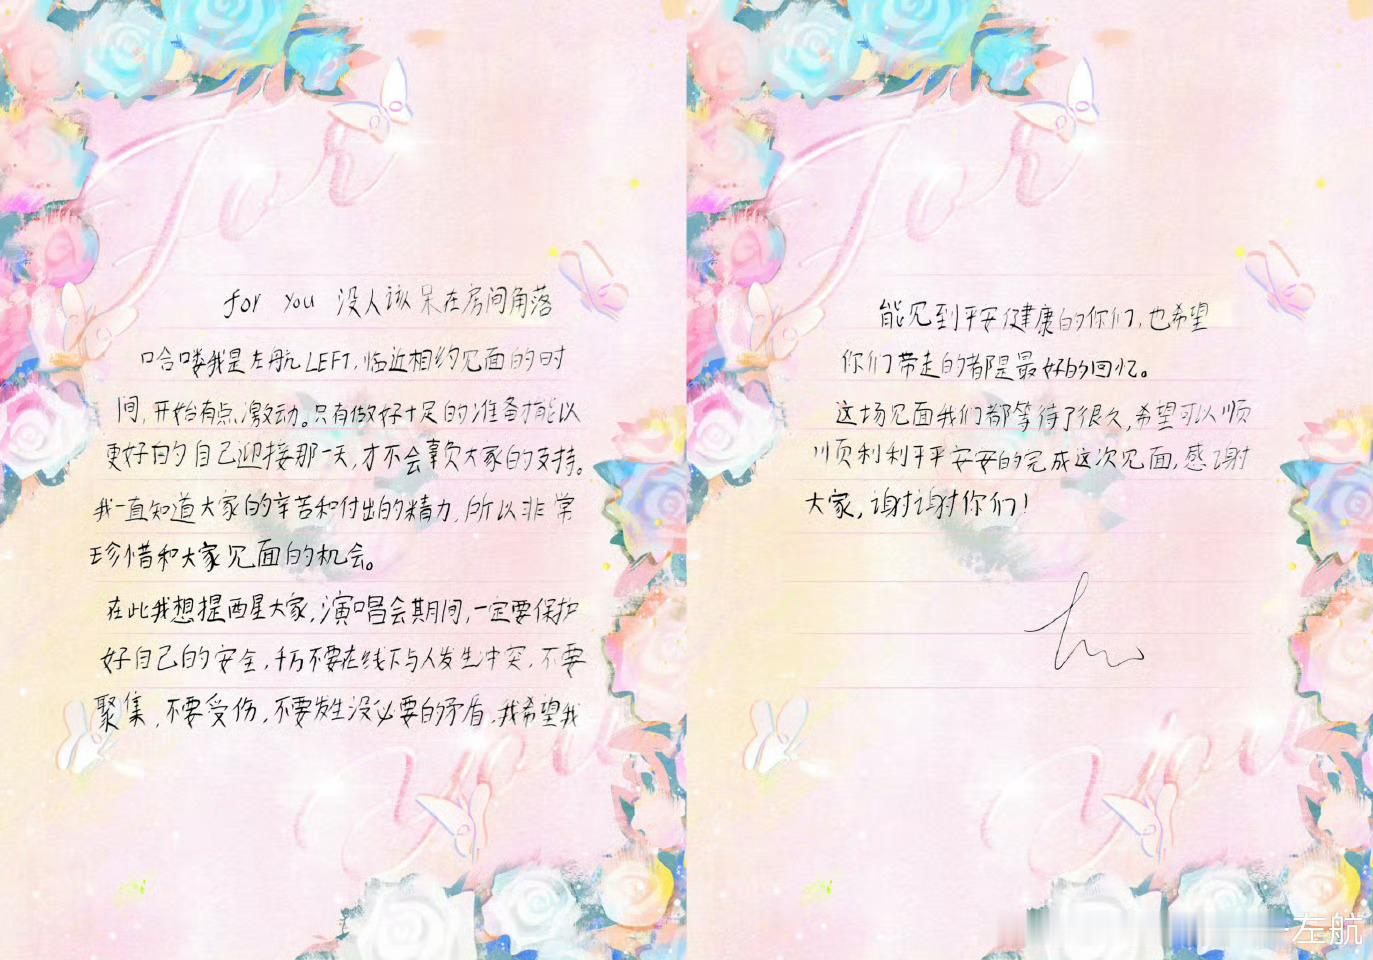 For
for you 没人该呆在房间角落
哈喽我是左航LEFT,临近相约见面的时
间,开始有点激动。只有做好十足的准备才能以
更好的自己迎接那一天,才不会辜负大家的支持。
我一直知道大家的辛苦和付出的精力,所以非常
珍惜和大家见面的机会。
在此我想提醒大家,演唱会期间,一定要保护
好自己的安全,千万不要在线下与人发生冲突,不要
聚集,不要受伤,不要发生没必要的矛盾,我希望我
You
For
能见到平安健康的你们,也希望
你们带走的都是最好的回忆。
这场见面我们都等待了很久,希望可以顺
顺利利平平安安的完成这次见面,感谢
大家,谢谢你们!
You
左航